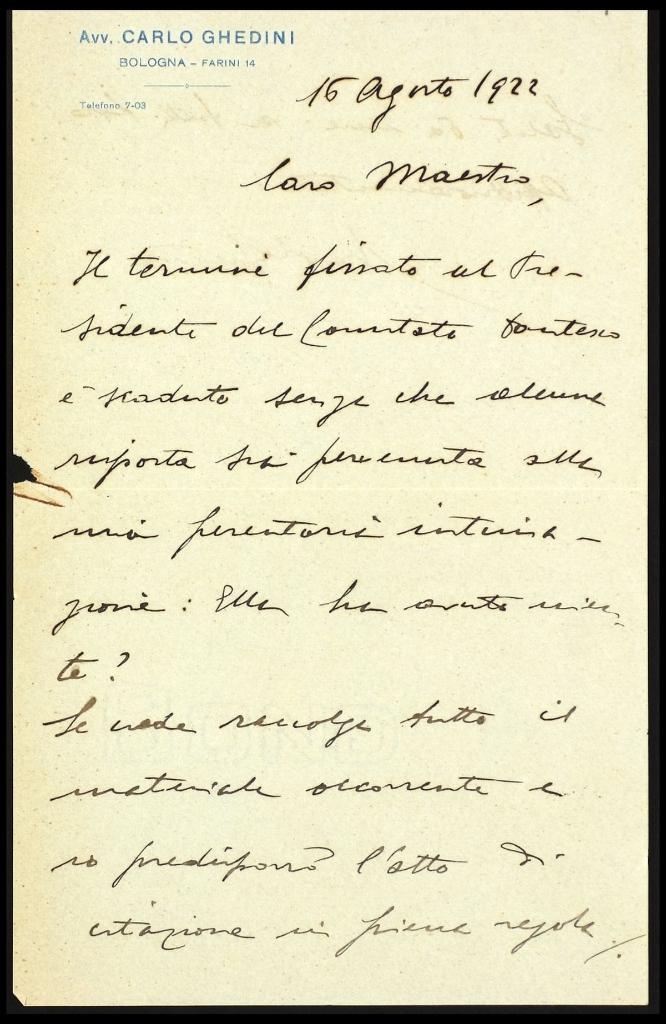 Avv. CARLO GHEDINI
BOLOGNA – FARINI 14
Telefono 7-03
16 Agosto 1922
Caro Maestro,
Il termine fissato al Pre-
sidente del Comitato Dantesco
è scaduto senza che alcuna
risposta sia pervenuta alla
mia perentoria intima-
zione: Ella ha avuto nien-
te?
Se crede raccolga tutto il
materiale occorrente e
io predisporrò l'atto di
citazione in piena regola.